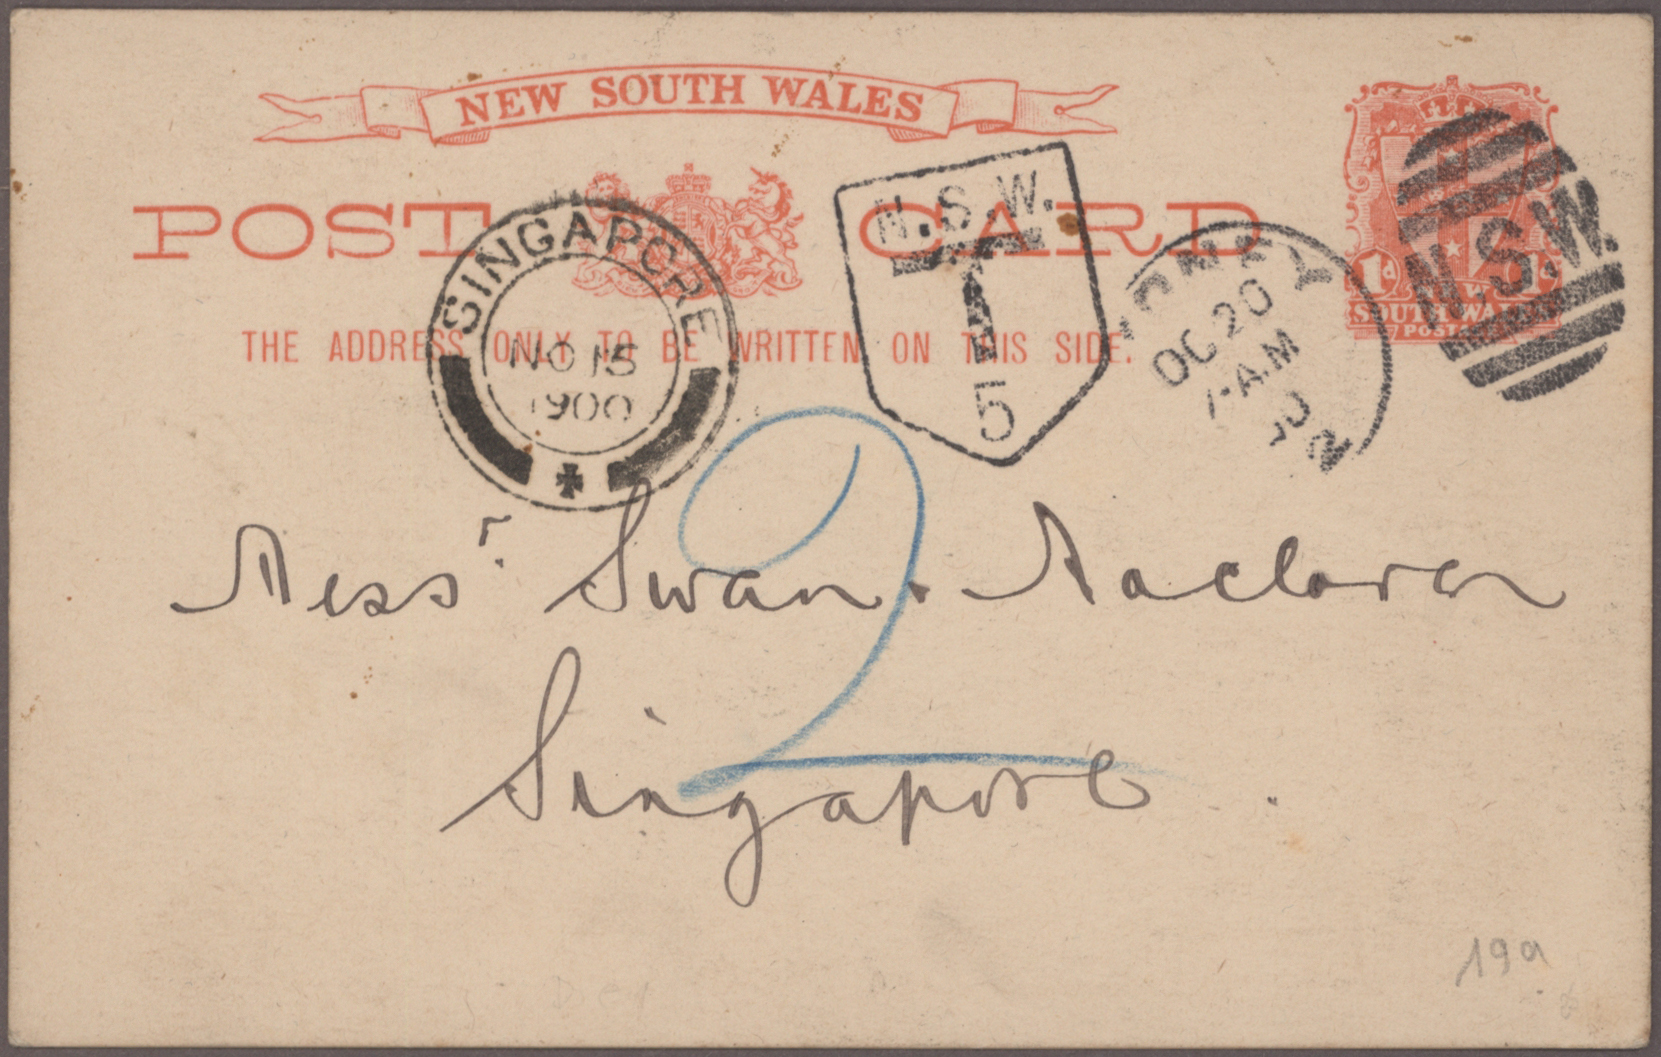 NEW SOUTH WALES
POST CARD
THE ADDRESS ONLY TO BE WRITTEN ON THIS SIDE.
1d 1d
SOUTH WALES
N.S.W.
SINGAPORE
NO 15
1900
N.S.W.
T
5
OC 20
7-A.M
2
Messr. Swan. Maclaren
Singapore.
199